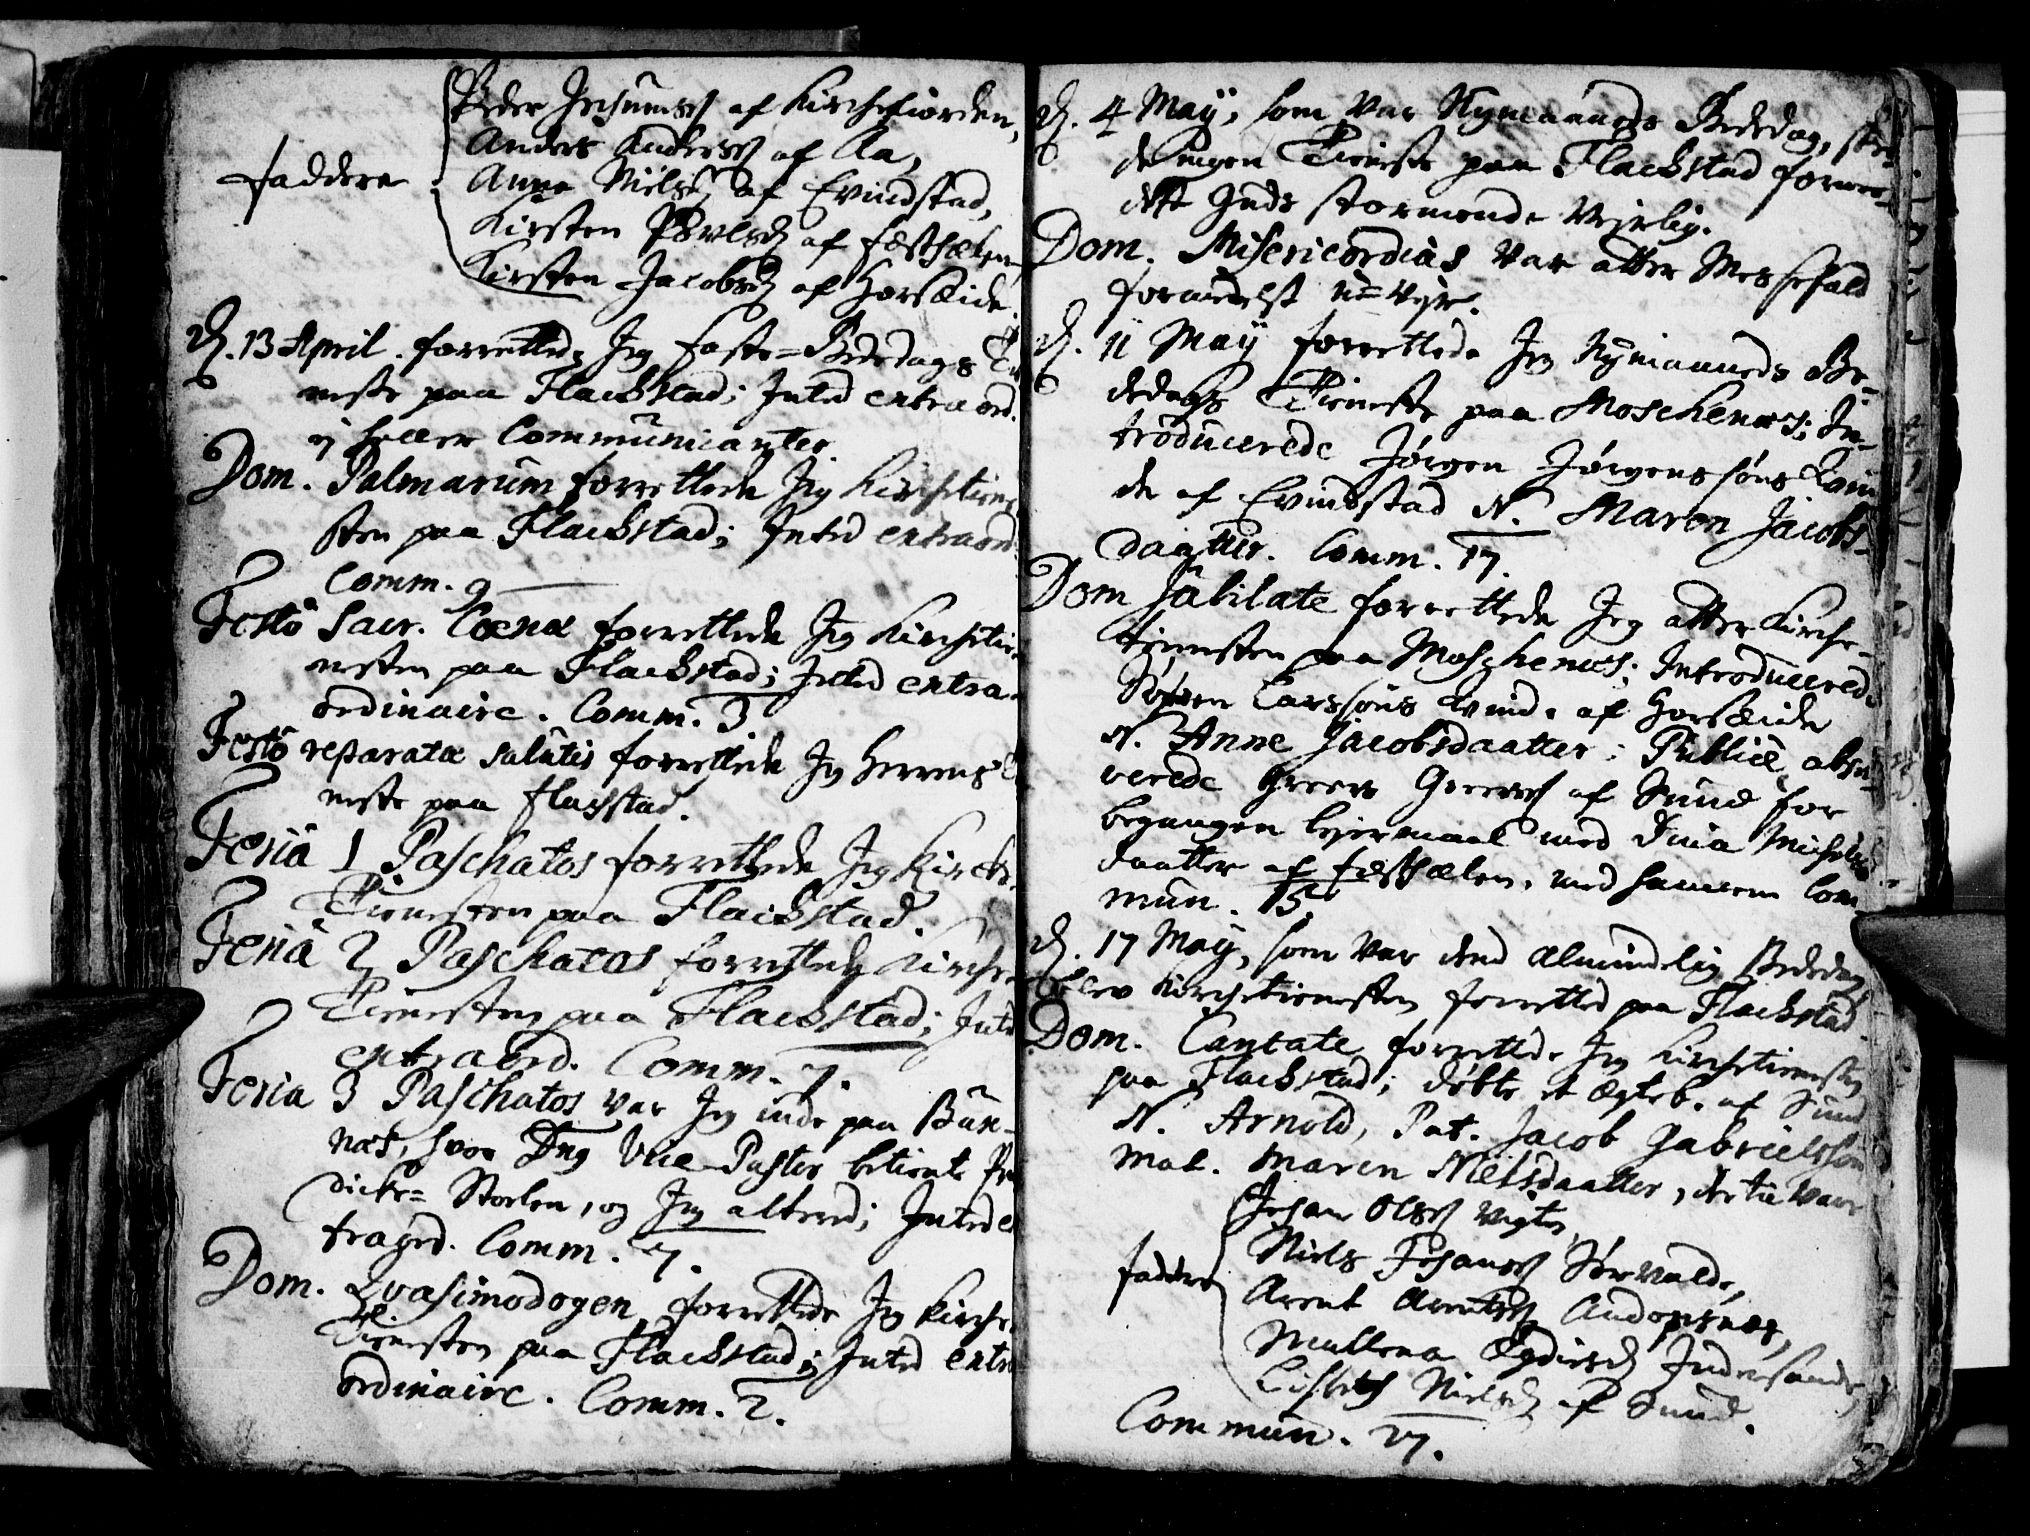 Peder Johanss af Kirchefiorden,
Anders Anders af Aa,
faddere
Anna Niels af Evindstad,
Kirsten Povls af Festhælen
Kirsten Jacobs af Horseide.
D. 13 April. forrettede Jeg faste-Bededags Tie
neste paa Flackstad; Inted extraord.
ej heller Communicanter.
Dom. Palmarum forrettede Jeg Kirchetiene
sten paa Flackstad; Inted extraord
Comm. 9
Festo Sacr. Coenæ forrettede Jeg Kirchetie
nesten paa Flackstad; Inted extra-
ordinaire. Comm. 3
Festo reparatæ salutis forrettede Jeg Herrens
neste paa flachstad.
Feria 1 Paschatos forrettede Jeg Kirche
Tienesten paa Flackstad.
Feria 2 Paschatos forrettede Kirche
Tienesten paa Flackstad; Inted
extraord. Comm. 7.
Feria 3 Paschatos var Jeg inde paa Bux-
næs, hvor Vice Paster betiente Præ
dicke-Stoelen, og Jeg alteret; Inted ex
traord. Comm. 7.
Dom. Qvasimodogen forrettede Jeg Kirche
Tienesten paa Flackstad; Inted extra
ordinaire. Comm. 2.
D. 4 Maÿ, som var Nymaaneds Bededag, ske-
de ingen Tieneste paa Flackstad formee-
delst Guds stormende Vejrlig.
Dom. Misericordias var atter Messefald
formedelst u-vejr.
D. 11 Maÿ forrettede Jeg Nymaaneds Be-
dedags Tieneste paa Moschenæs; In-
troducerede Jørgen Jørgenssøns Qvin
de af Evindstad N. Maren Jacobs-
daatter. Comm. 17.
Dom Jubilate forrettede Jeg atter Kirche-
tienesten paa Moschenæs; Introducerede
Søfren Larssøns Qvinde af Horseide
N. Anne Jacobsdaatter; Publice absol-
verede Greers Greerss af Sund for
begangen leiermaal med Dina Michels
daatter af Festhælen, med hannem Com
mun. 15.
D. 17 Maÿ, som var dend Almindelig Bededag
blev Kirchetienesten forrettet paa Flackstad
Dom. Cantate forrettede Jeg Kirchetienesten
paa Flackstad; døbte et ægteb. af Sund
N. Arnold, Pat. Jacob Gabrielssøn
Mat. Maren Nielsdaatter, der til vare
Johan Ols Vigten
Niels Johans Sørvalde,
faddere
Arent Arents Andopsnæs,
Mallena Indersande,
Lisbeth Niels af Sund.
Commun. 27.